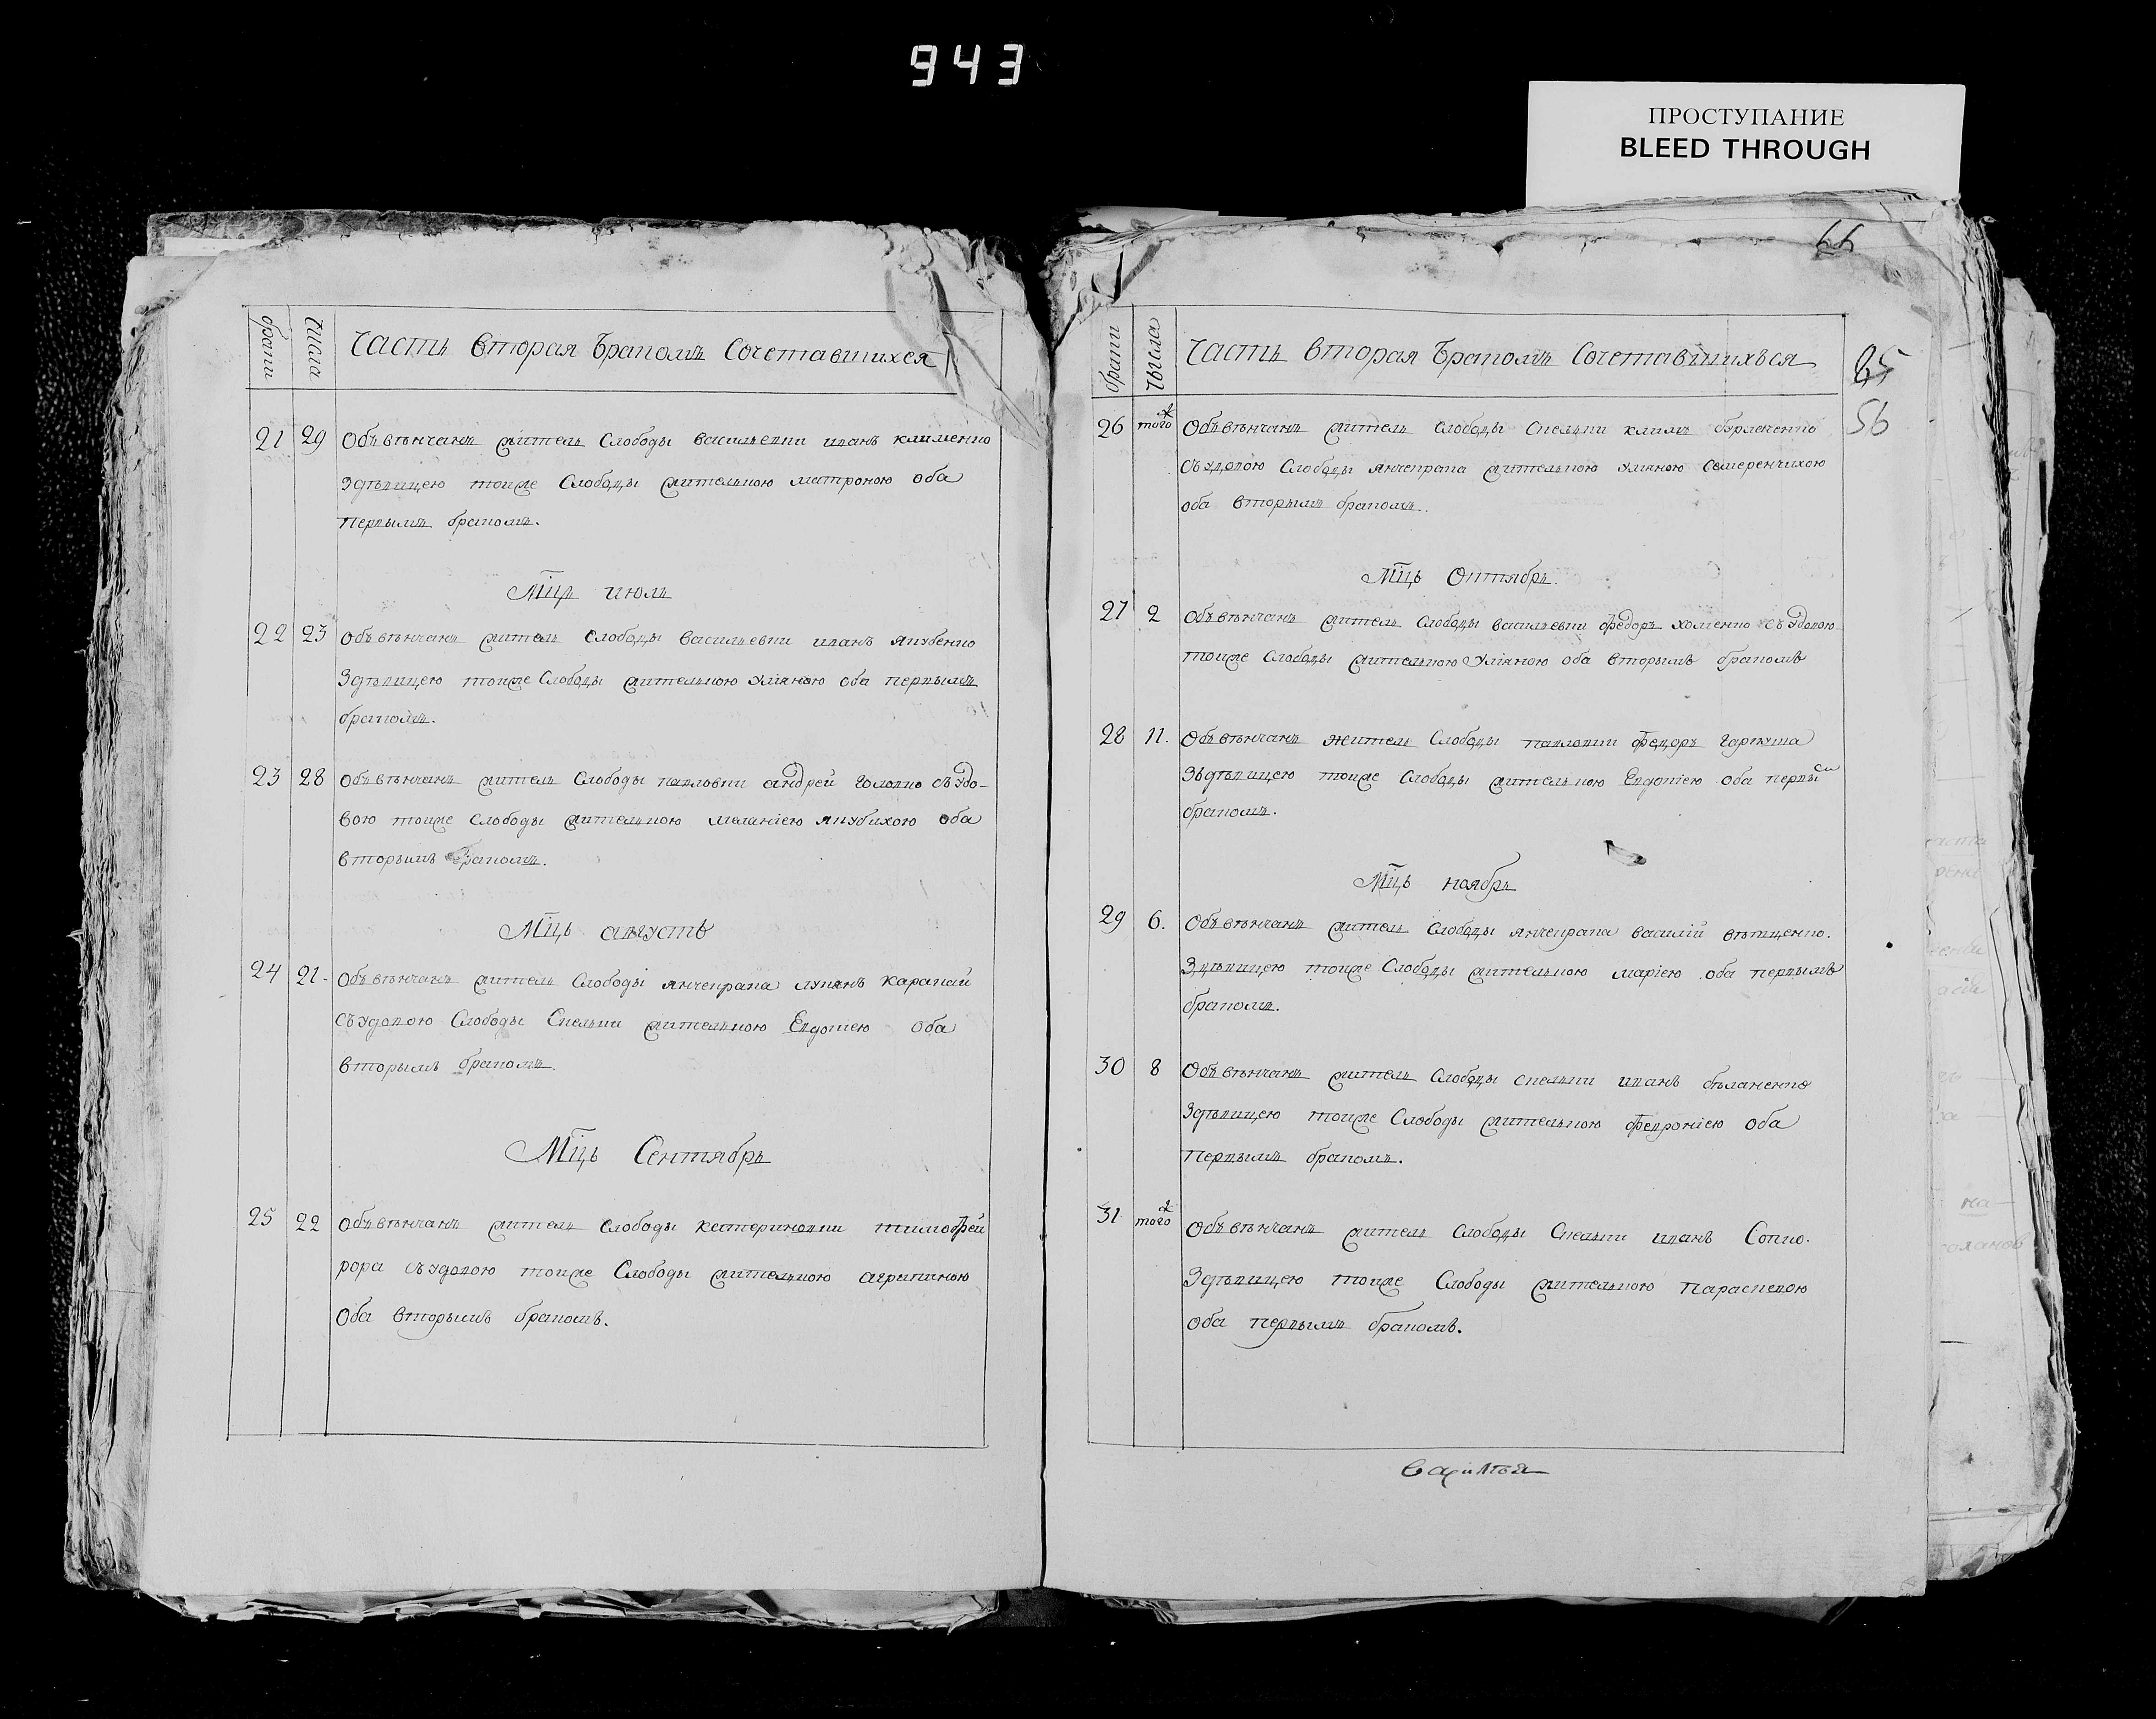 943
ПРОСТУПАНИЕ
BLEED THROUGH
66
браки
Числа
Часть вторая Бракомъ Сочетавшихся
21 29 Объвѣнчанъ житель Слободы васильевки иванъ клименко
Здѣвицею тоиже Слободы жителкою матроною оба
первымъ бракомъ.
Мц͠ъ июль
22 23 Объвѣнчанъ житель Слободы васильевки иванъ якубенко
Здѣвицею тоиже Слободы жителкою Уліяною оба первымъ
бракомъ.
23 28 Объвѣнчанъ житель Слободы павловки андрей головко съУдо-
вою тоиже Слободы жителкою меланіею якубихою оба
вторымъ бракомъ.
Мц͠ъ августъ
24 21. Объвѣнчанъ житель Слободы янчекрака лукянъ карапай
съУдовою Слободы Скельки жителкою Евдокіею оба
вторымъ бракомъ.
Мц͠ъ Сентябрь
25 22 Объвѣнчанъ житель Слободы катериновки тимофей
рора съУдовою тоиже Слободы жителкою агрипиною
Оба вторымъ бракомъ.
браки
Числа
Часть вторая Бракомъ Сочетавшихъся
56
26 того ж Объвѣнчанъ житель Слободы Скельки климъ бурлаченко
съУдовою Слободы янчекрака жителкою Уляною Семеренчихою
оба вторымъ бракомъ.
Мц͠ъ Октябрь.
27 2 Объвѣнчанъ житель Слободы васильевки федоръ хоменко съУдовою
тоиже Слободы жителкою Уліяною оба вторымъ бракомъ
28 11. Объвѣнчанъ житель Слободы павловки федоръ гаркуша
Зъдѣвицею тоиже Слободы жителкою Евдокіею оба первым
бракомъ.
Мц͠ъ ноябрь
29 6. Объвѣнчанъ житель Слободы янчекрака василій вѣтценко.
Здѣвицею тоиже Слободы жителкою маріею оба первымъ
бракомъ.
30 8 Объвѣнчанъ житель Слободы скельки иванъ бѣланенко
Здѣвицею тоиже Слободы жителкою февроніею оба
Первымъ бракомъ.
31 того ж Объвѣнчанъ житель Слободы Скельки иванъ Сопко.
Здѣвицею тоиже Слободы жителкою параскевою
оба первымъ бракомъ.